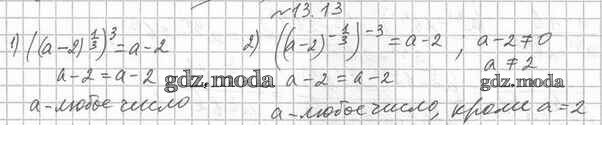 №13.13
1) ((a-2)^{1/3})^3 = a-2
a-2 = a-2
a-любое число
2) ((a-2)^{-1/3})^{-3} = a-2 ; a-2≠0
a≠2
a-2 = a-2
a-любое число, кроме a=2
gdz.moda
gdz.moda